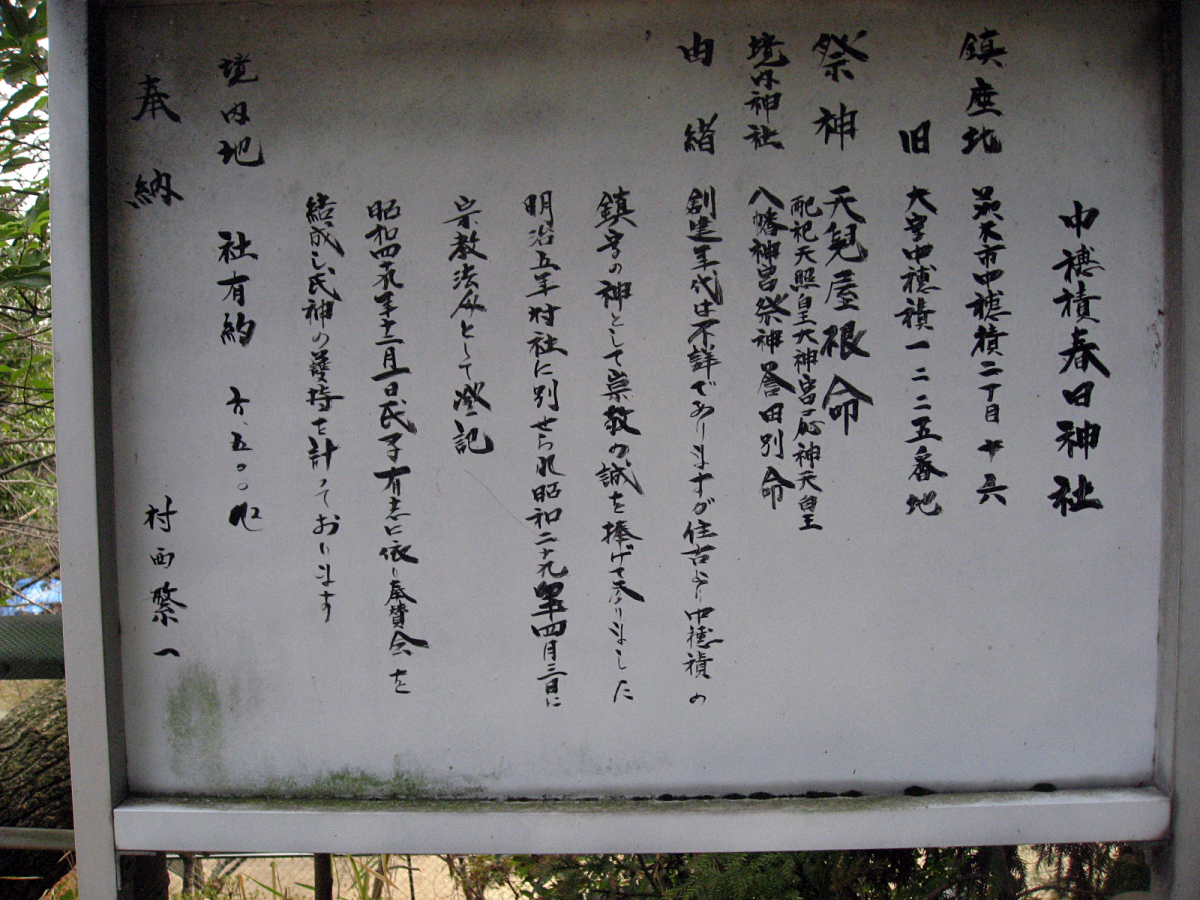 中穂積春日神社
鎮座地 茨木市中穂積二丁目十ノ六
旧 大字中穂積一二二五番地
祭神 天兒屋根命
配祀天照皇大神宮応神天皇
境内神社 八幡神宮祭神誉田別命
由緒 創建年代は不詳でありますが住吉より中穂積の
鎮守の神として崇教の誠を捧げて参りました
明治五年村社に別せられ昭和二十九年四月三日に
宗教法人として登記
昭和四十九年十二月一日氏子有志に依り奉賛会を
結成し氏神の護持を計っております
境内地 社有約 五〇〇
奉納 村西繁一